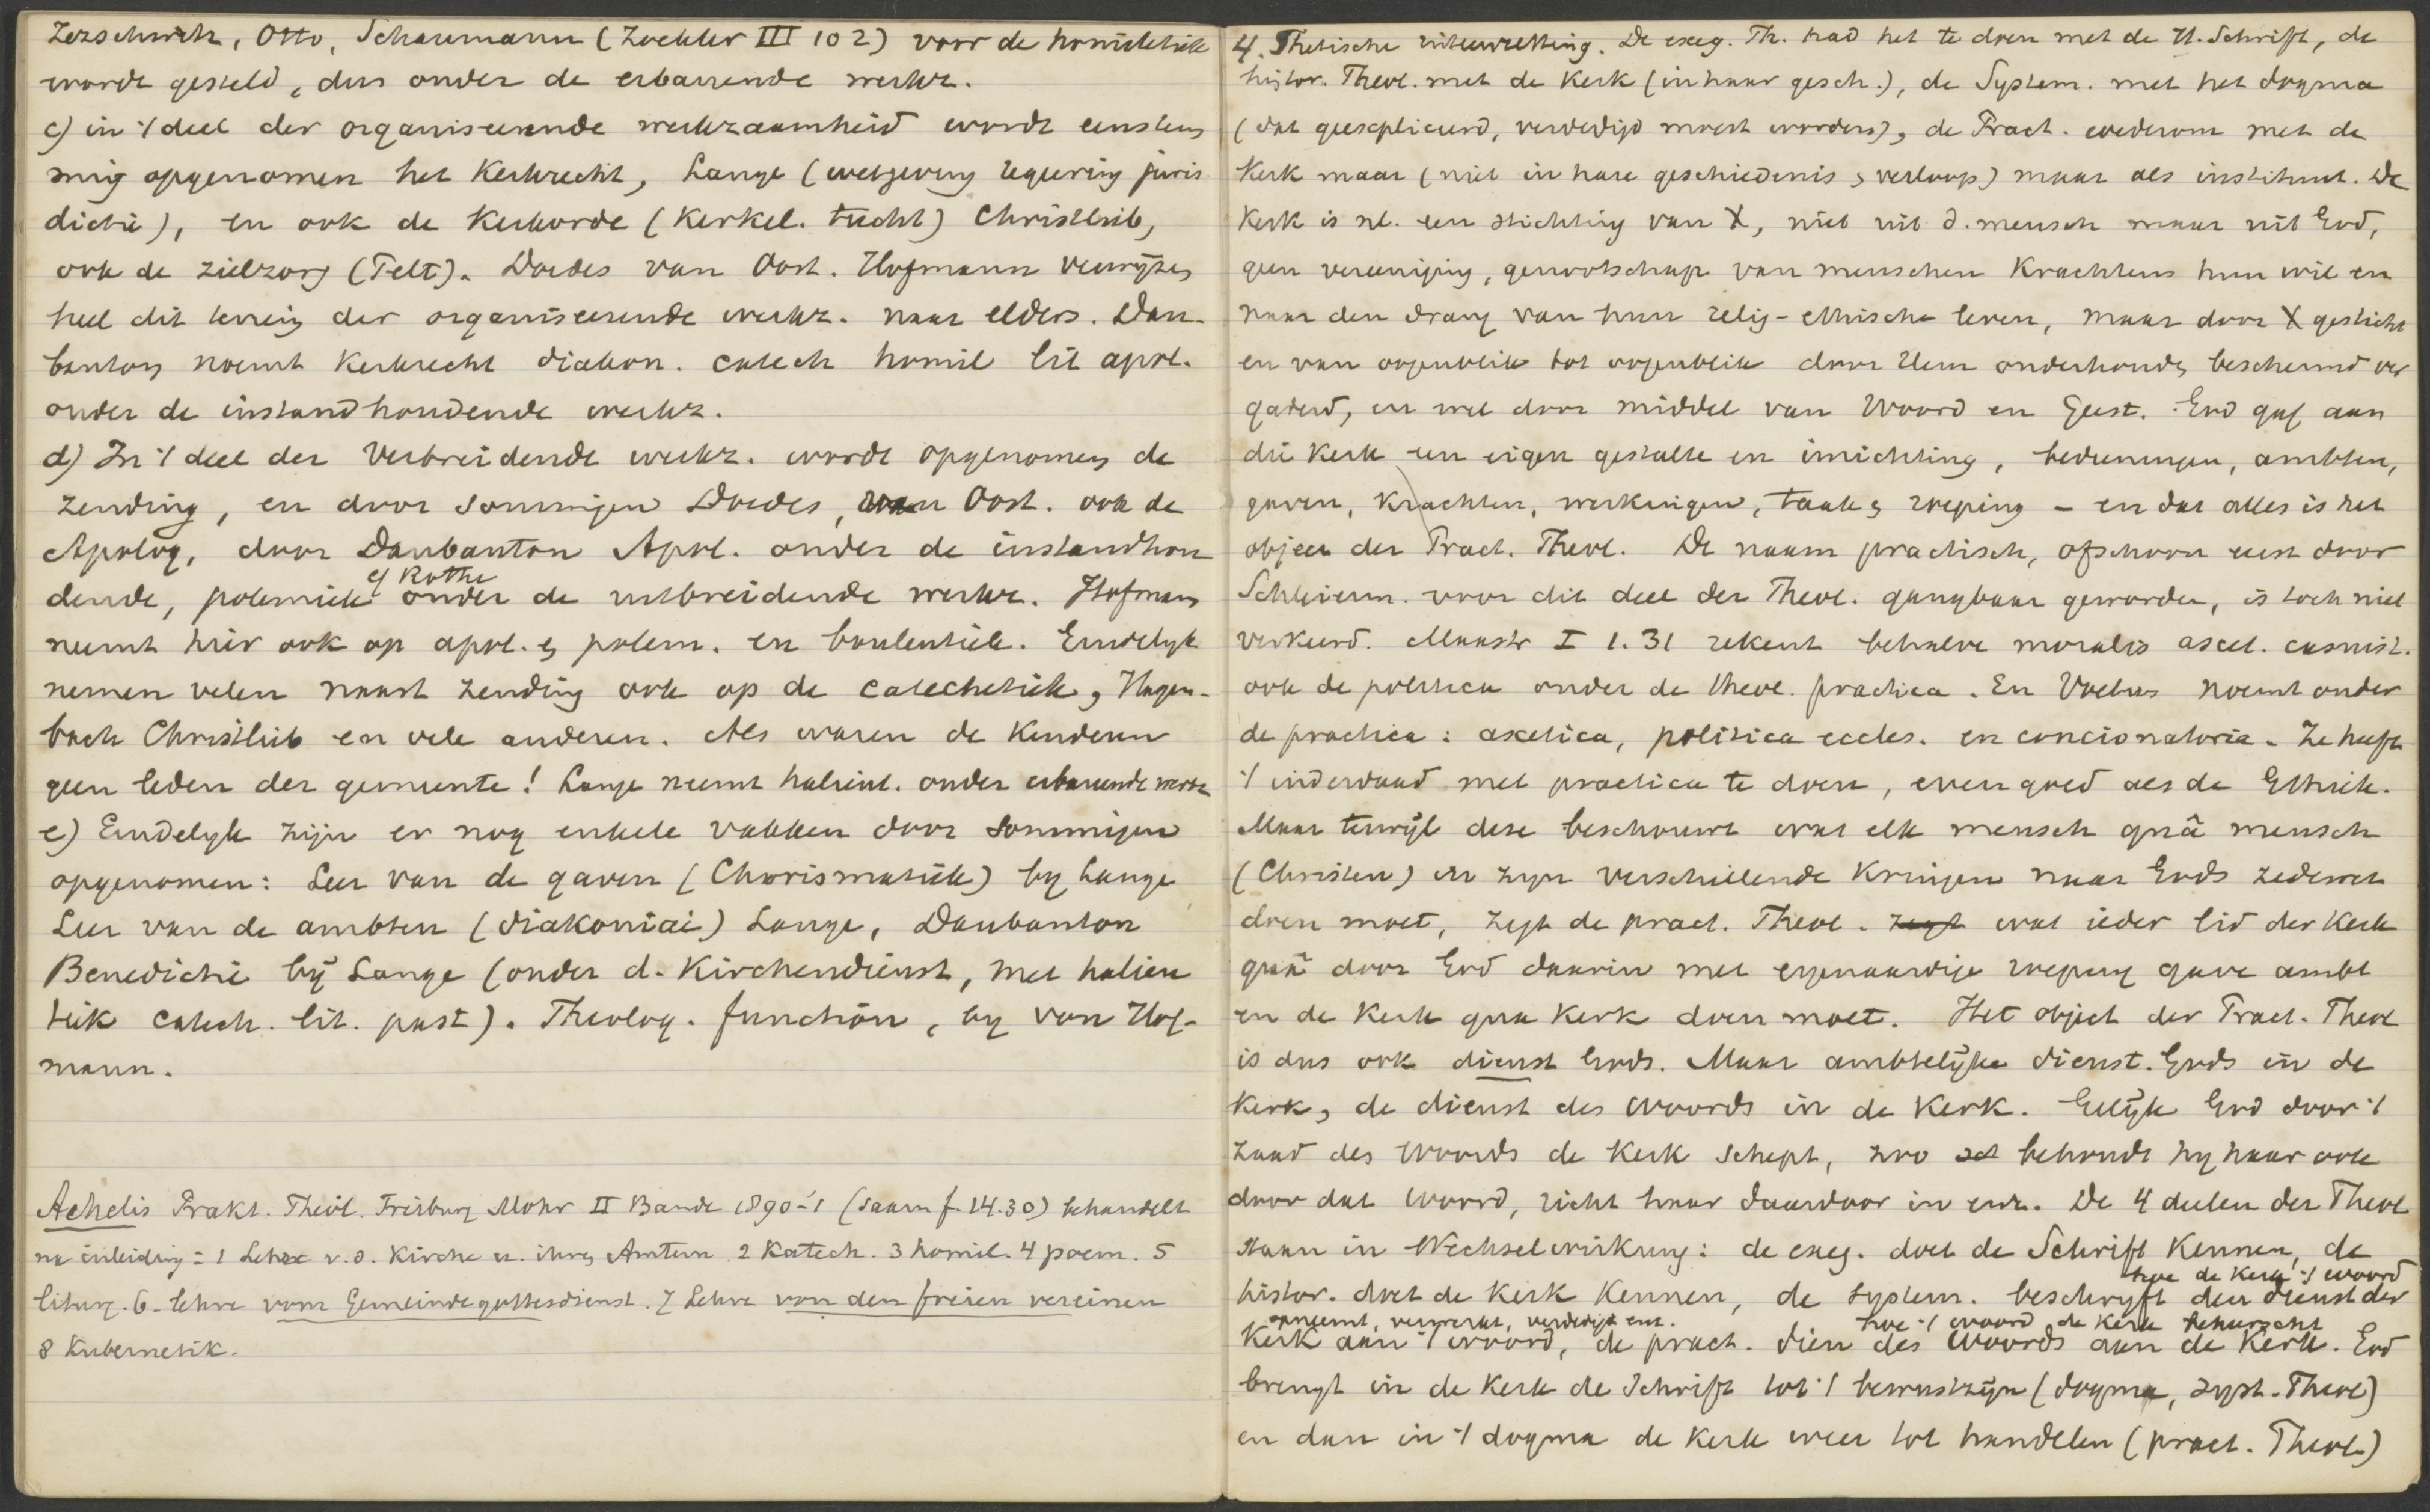 Zezschwitz, Otto, Schaumann (Zoekler III 102) voor de homiletiek
wordt gesteld, dus onder de erbauende werkz.
c) in 't deel der organiseerende werkzaamheid wordt eenstem
mig opgenomen het Kerkrecht, Lange (wetgeving regeering juris
dictie), en ook de Kerkorde (Kerkel. tucht) Christlieb,
ook de zielzorg (Pelt). Doedes van Oost. Hofmann verwijzen
heel dit terrein der organiseerende werkz. naar elders. Dau-
banton noemt Kerkrecht diakon. catech homil lit apol.
onder de instandhoudende werkz.
d) In 't deel der Verbreidende werkz. wordt opgenomen de
Zending, en door sommigen Doedes, van Oost. ook de
Apolog, door Daubanton Apol. onder de instandhou
dende, polemiek cf Rothe onder de uitbreidende werkz. Hofmann
neemt hier ook op apol. en polem. en boulentiek. Eindelyk
nemen velen naast Zending ook op de Catechetiek, Hagen-
bach Christlieb en vele anderen. Als waren de Kinderen
geen leden der gemeente! Lange neemt halieut. onder erbauende werkz
e) Eindelyk zijn er nog enkele vakken door sommigen
opgenomen: Leer van de gaven (Charismatiek) by Lange
Leer van de ambten (diakoniai) Lange, Daubanton
Benedictie bij Lange (onder d. Kirchendienst, met halieu
tik catech. lit. past). Theolog. function, by von Hof-
mann.
Achelis Prakt. Theol. Freiburg Mohr II Bande 1890-1 (saam f. 14.30) behandelt
na inleiding: 1 Lehre v. d. Kirche u. ihren Amtern 2 Katech. 3 homil. 4 poem. 5
liturg. 6. lehre vom Gemeindegottesdienst. 7 Lehre von den freien vereinen
8 Kubernetik.
4. Thetische uiteenzetting. De exeg. Th. had het te doen met de H. Schrift, de
histor. Theol. met de Kerk (in haar gesch.), de System. met het dogma
(dat geexpliceerd, verdedigd moest worden), de Pract. wederom met de
Kerk maar (niet in hare geschiedenis en verloop) maar als instituut. De
Kerk is nl. een stichting van X, niet uit d. mensch maar uit God,
geen vereeniging, genootschap van menschen Krachtens hun wil en
naar den drang van hun relig-ethische leven, maar door X gesticht
en van oogenblik tot oogenblik door Hem onderhouden beschermd ver
gaderd, en wel door middel van Woord en Geest. God gaf aan
die Kerk een eigen gestalte en inrichting, bedieningen, ambten,
gaven, Krachten, werkingen, taak en roeping - en dat alles is het
object der Pract. Theol. De naam practisch, ofschoon eerst door
Schleierm. voor dit deel der Theol. gangbaar geworden, is toch niet
verkeerd. Mastr I 1. 31 rekent behalve moralis ascet. casuist.
ook de politica onder de theol. practica. En Voetius noemt onder
de practica: ascetica, politica eccles. en concionatoria. Ze heeft
't inderdaad met practica te doen, evengoed als de Ethiek.
Maar terwijl deze beschouwt wat elk mensch quâ mensch
(Christen) in zijn verschillende Kringen naar Gods zedewet
doen moet, zegt de pract. Theol. zegt wat ieder lid der Kerk
quâ door God daarin met eigenaardige roeping gave ambt
en de Kerk qua Kerk doen moet. Het object der Pract. Theol
is dus ook dienst Gods. Maar ambtelijke dienst. Gods in de
Kerk, de dienst des Woords in de Kerk. Gelijk God door 't
zaad des Woords de Kerk schept, zoo behoudt hy haar ook
door dat Woord, richt haar daardoor in enz. De 4 deelen der Theol
staan in Wechselwirkung: de exeg. doet de Schrift Kennen, de
hoe de Kerk 't woord
histor. doet de Kerk Kennen, de system. beschryft den dienst der
opneemt, verwerkt, verdedigt enz. hoe 't woord de Kerk beheerscht
Kerk aan 't woord, de pract. dien des Woords aan de Kerk. God
brengt in de Kerk de Schrift tot 't bewustzijn (dogma, syst. Theol)
en dan in 't dogma de Kerk weer tot handelen (pract. Theol)